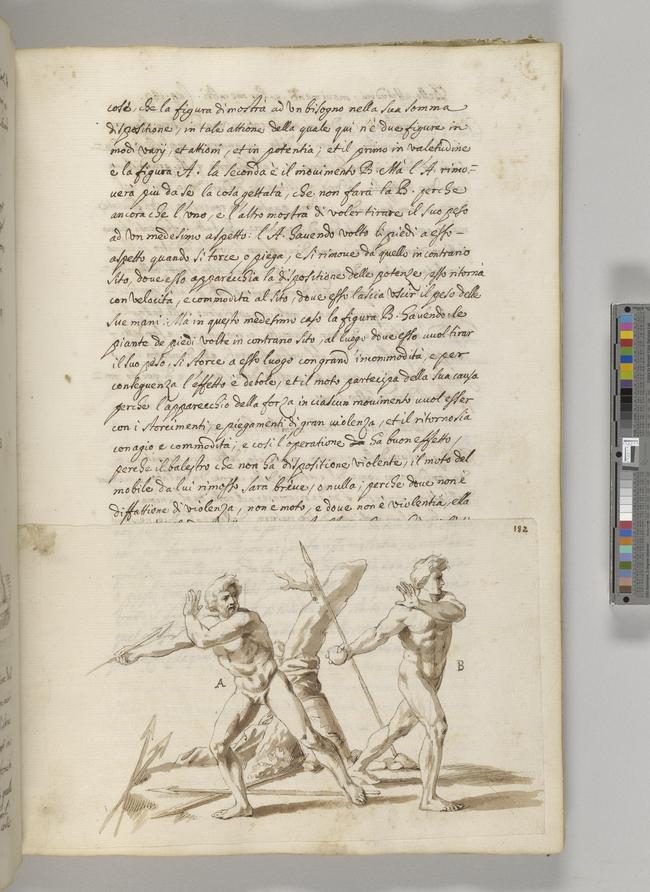 cosa, che la figura dimostra ad un bisogno nella sua somma
dispositione, in tale attione della quale qui n'è due figure in
modi varij, et attioni, et in potentia; et il primo in valetudine
è la figura A. la seconda è il movimento B. Mà l'A. rimo=
verà più da se la cosa gettata, che non farà la B. perche
ancora che l'uno, e l'altro mostrà di voler tirare il suo peso
ad un medesimo aspetto: l'A. havendo volto li piedi a esso
aspetto quando si torce, o piega, e si rimove da quello in contrario
sito, dove esso apparecchia la dispositione delle potenze, esso ritorna
con velocità, e commodità al sito, dove esso lascia uscir il peso delle
sue mani: Mà in questo medesimo caso la figura B. havendo le
piante de piedi volte in contrario sito, al luogo dove esso vuol tirar
il suo peso, si storce a esso luogo con grand'incommodità, e per
conseguenza l'effetto è debole, et il moto partecipa della sua causa
perche l'apparecchio della forza in ciascun movimento vuol esser
con i storcimenti, e piegamenti di gran violenza, et il ritorno sia
con agio e commodità; e così l'operatione ha buon effetto,
perche il balestro che non ha dispositione violente, il moto del
mobile da lui rimosso sarà breve, o nulla; perche dove non è
disfattione di violenza, non è moto, e dove non è violentia, ella
182
A
B